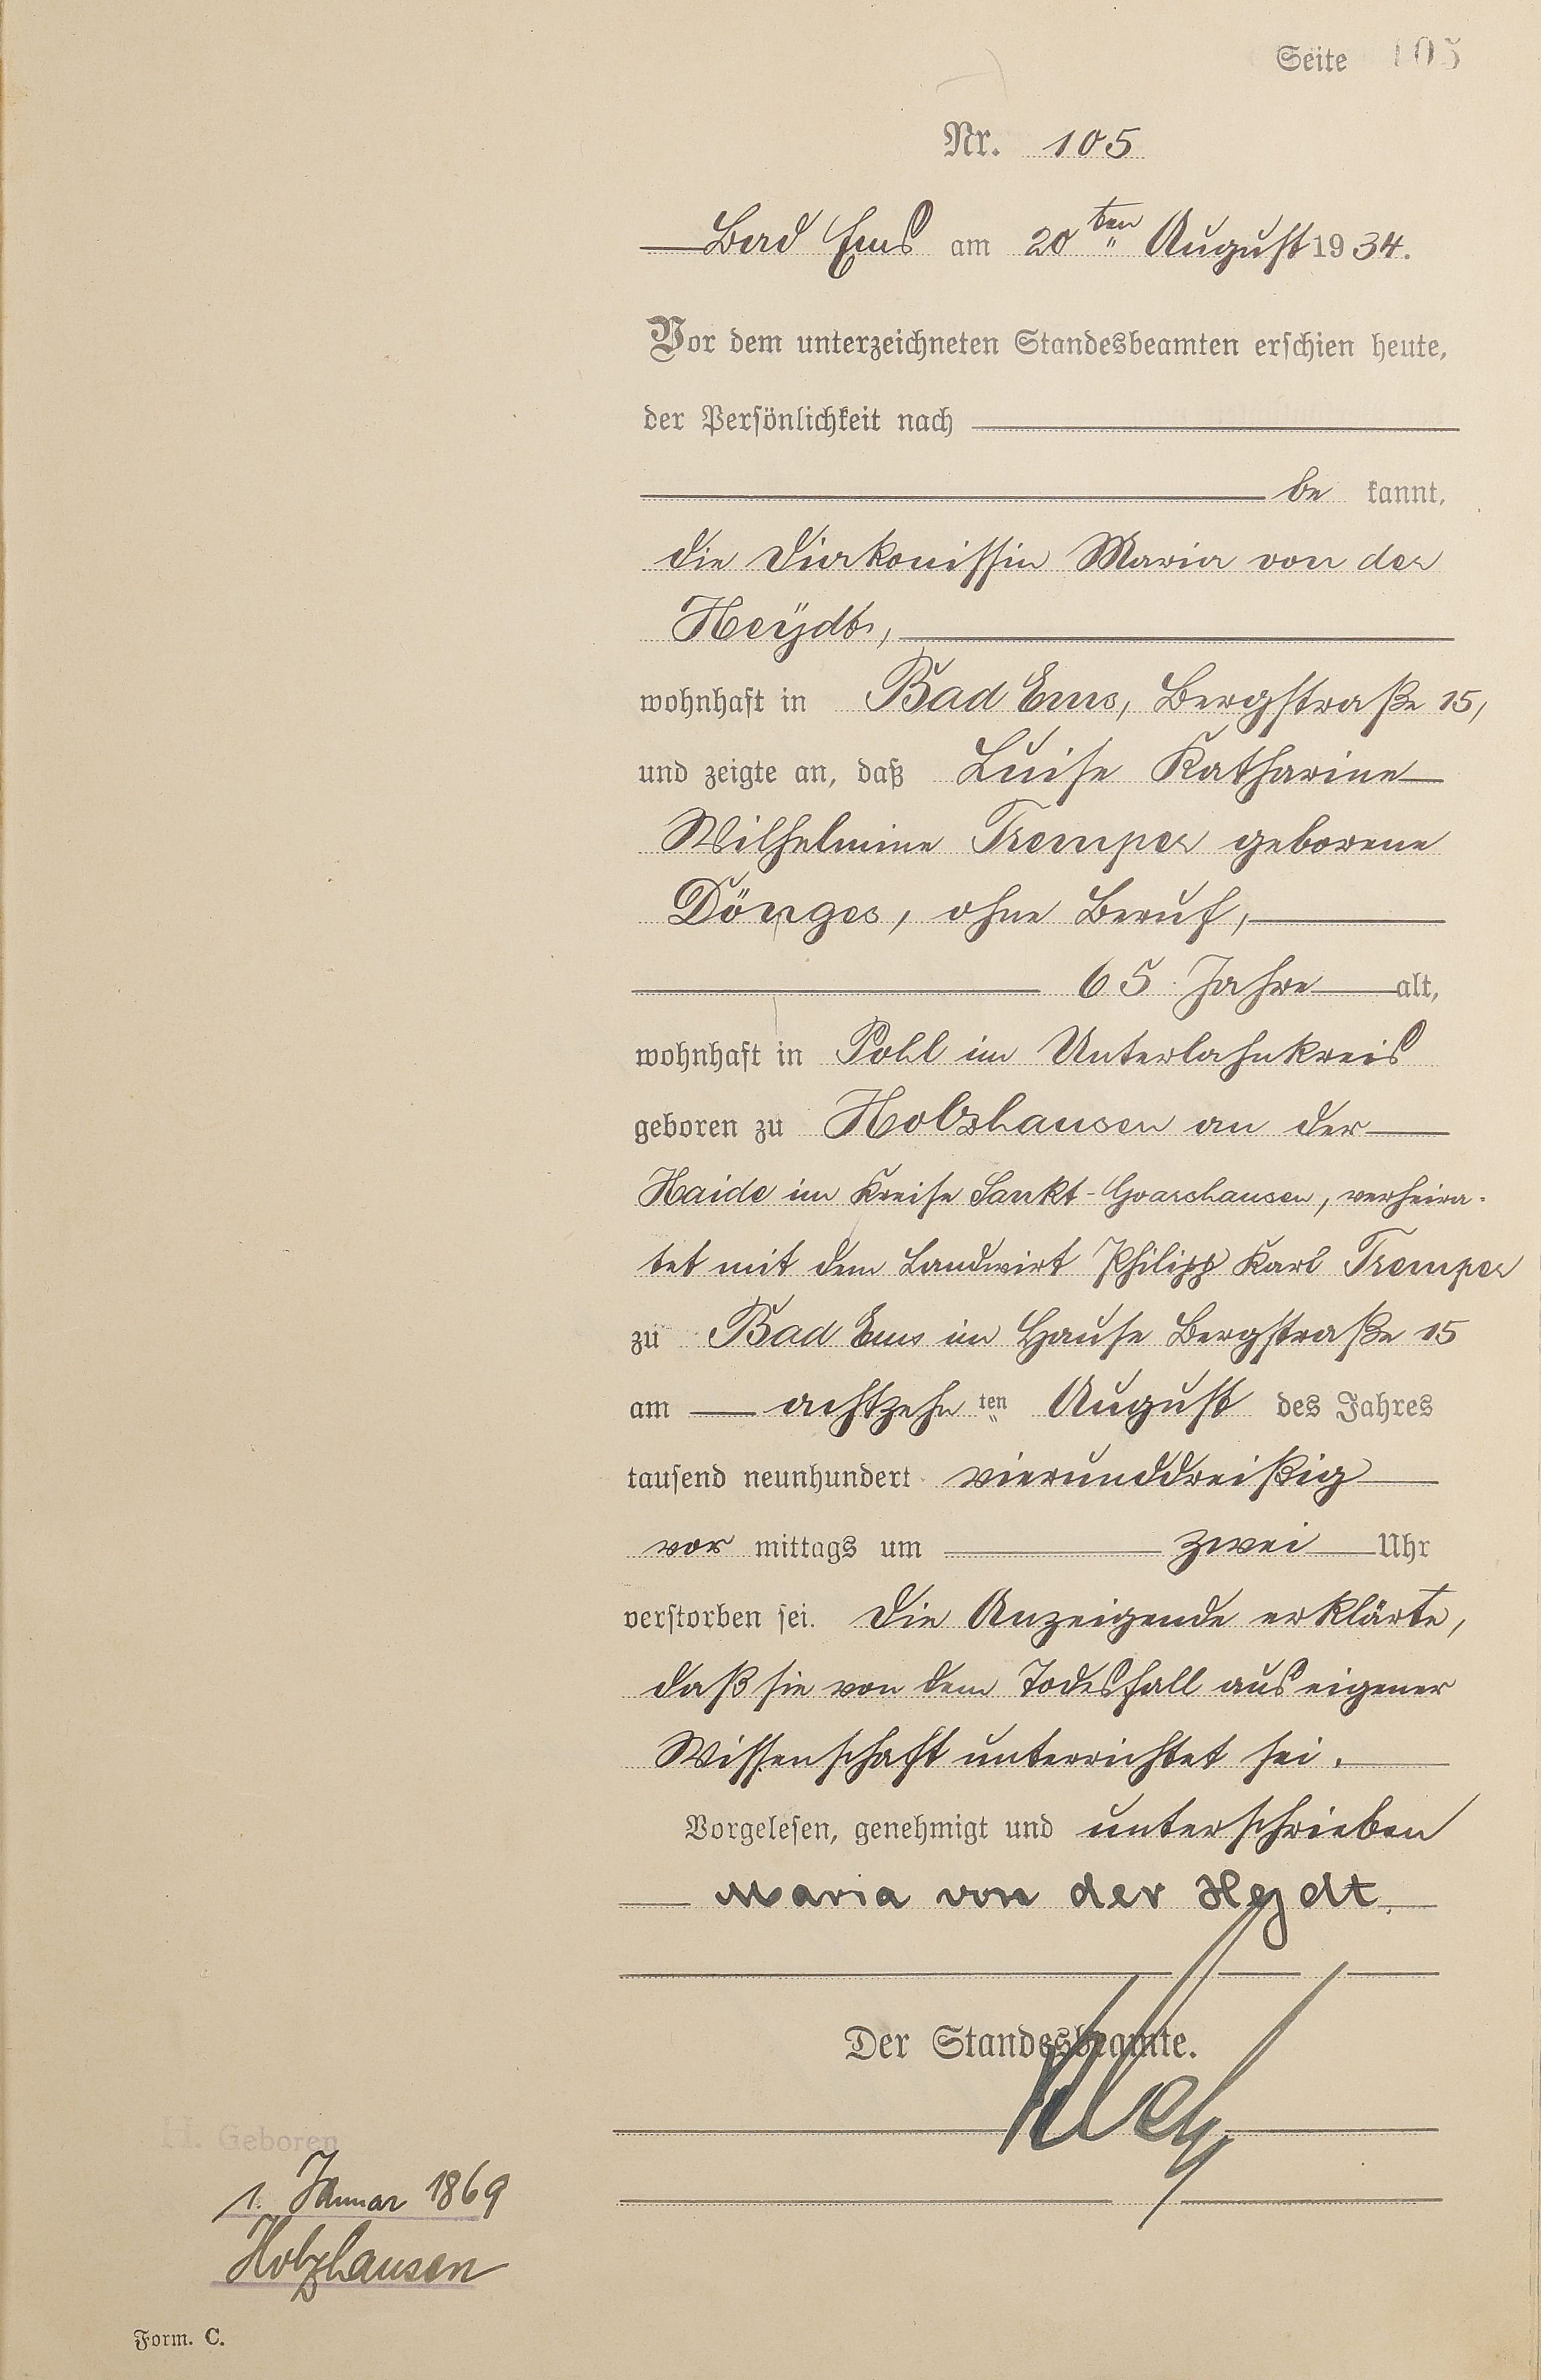 Seite 105
Nr. 105
Bad Ems am 20ten August 1934.
Vor dem unterzeichneten Standesbeamten erschien heute,
der Persönlichkeit nach
be kannt,
die Diakonissin Maria von der
Heÿdt,
wohnhaft in Bad Ems, Bergstraße 15,
und zeigte an, daß Luise Katharine
Wilhelmine Tremper geborene
Dönges, ohne Beruf,
65 Jahre alt,
wohnhaft in Pohl im Unterlahnkreis
geboren zu Holzhausen an der
Haide im Kreise Sankt-Goarshausen, verheira-
tet mit dem Landwirt Philipp Karl Tremper
zu Bad Ems im Hause Bergstraße 15
am achtzehn ten August des Jahres
tausend neunhundert vierunddreißig
vor mittags um zwei Uhr
verstorben sei. Die Anzeigende erklärte,
daß sie von dem Todesfall aus eigener
Wissenschaft unterrichtet sei.
Vorgelesen, genehmigt und unterschrieben
Maria von der Heydt.
Der Standesbeamte.
H. Geboren
1. Januar 1869
Holzhausen
Form. C.